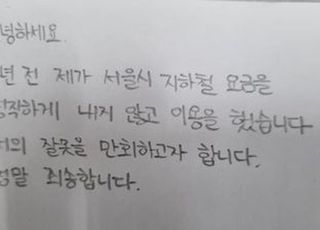 녕하세요.
년 전 제가 서울시 지하철 요금을
정작하게 내지 않고 이용을 했습니다
저의 잘못을 만회하고자 합니다.
정말 죄송합니다.